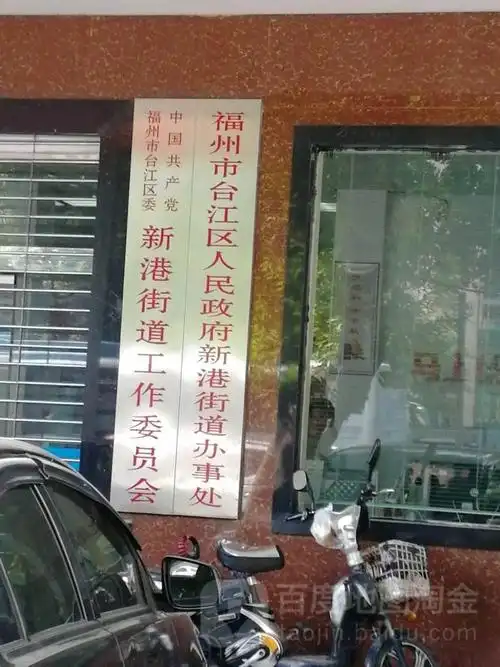 福州市台江区人民政府新港街道办事处
中国共产党
福州市台江区委
新港街道工作委员会
百度地图淘金
taojin.baidu.com